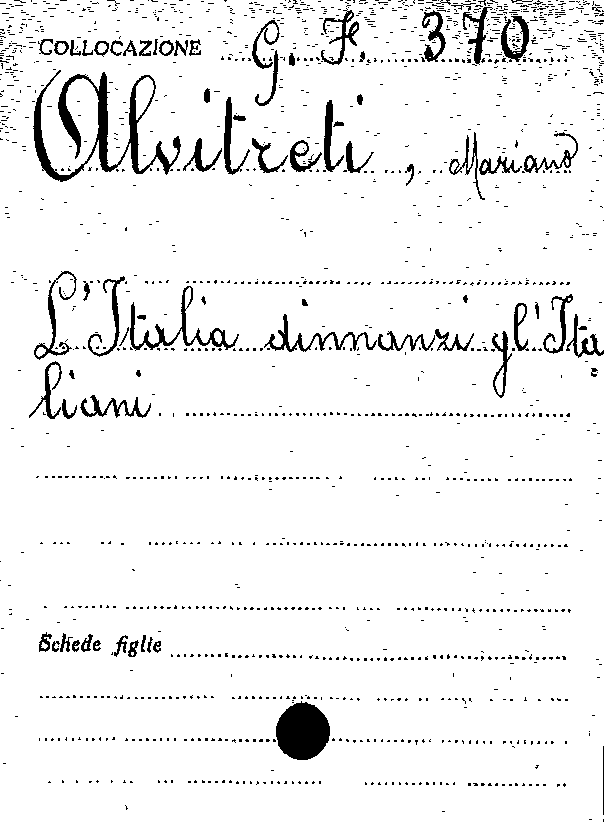 COLLOCAZIONE G. F. 370
Alvitreti, Mariano
L'Italia dinnanzi gl'Ita=
liani
Schede figlie